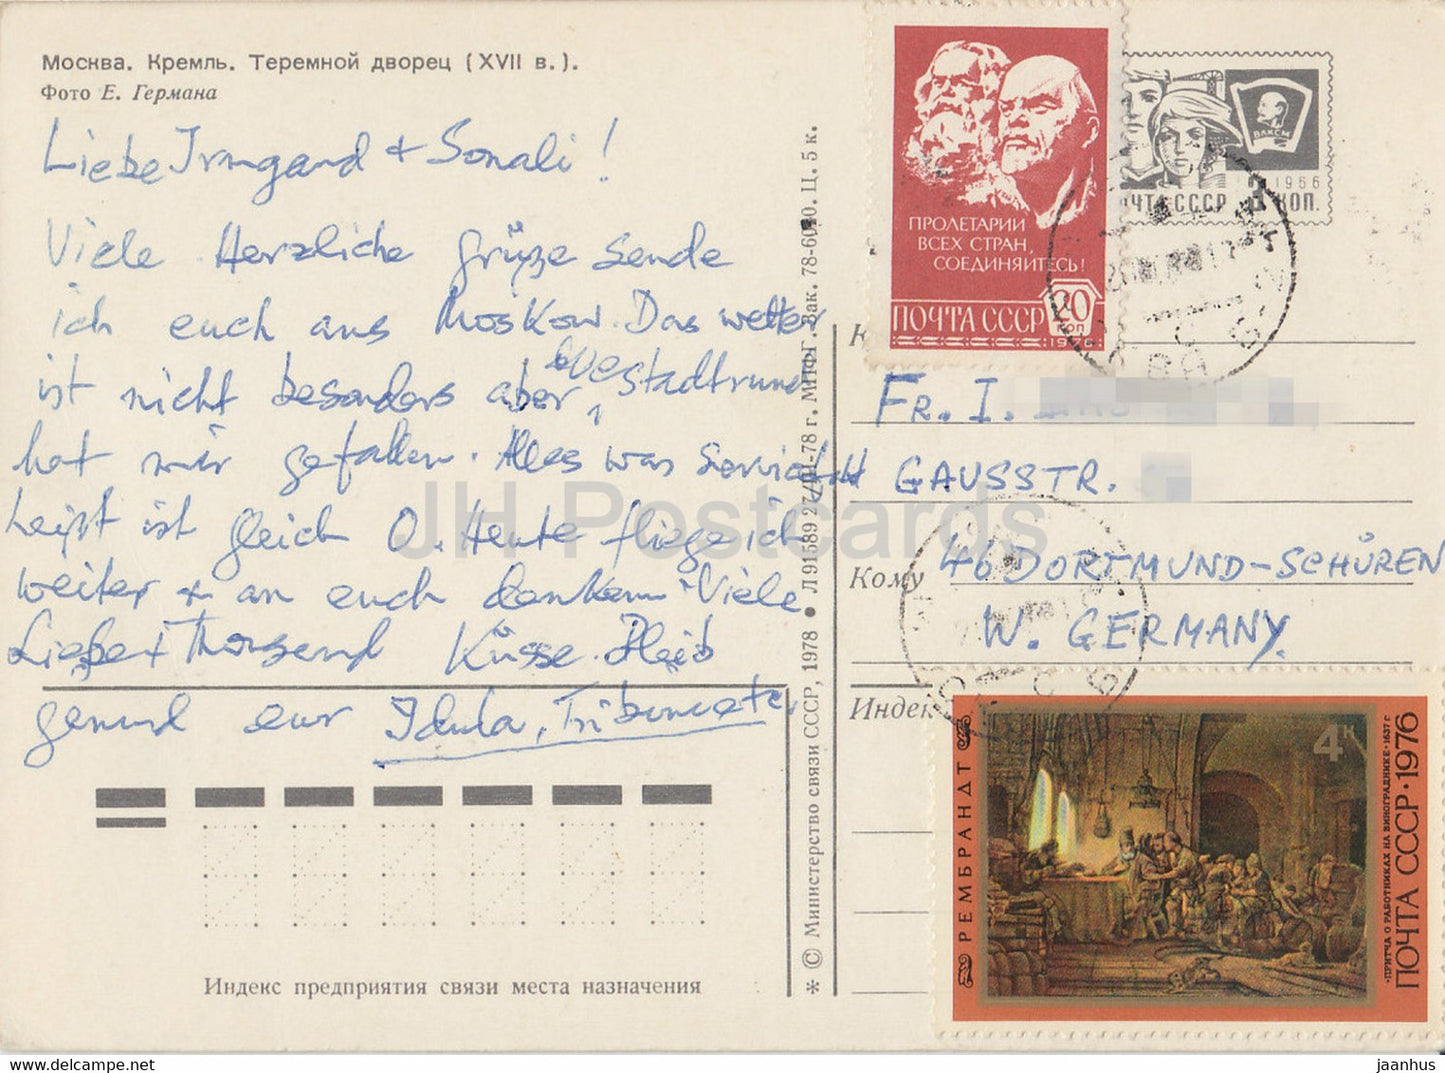 Москва. Кремль. Теремной дворец (XVII в.).
Фото Е. Германа
Liebe Irmgard + Sonali!
Viele Herzliche grüße sende
ich euch aus Moskow. Das wetter
ist nicht besonders aber stadtrund
hat mir gefallen. Alles was Service
heißt ist gleich 0. Heute fliege ich
weiter + an euch denken Viele
Liebe + Thousend Küsse. Bleib
gesund eur
Индекс предприятия связи места назначения
* © Министерство связи СССР, 1978 ● Л 91589 27/III-78 г. МПФГ. Зак. 78-6040. Ц. 5 к.
ПРОЛЕТАРИИ
ВСЕХ СТРАН,
СОЕДИНЯЙТЕСЬ!
ПОЧТА СССР
20
КОП
1976
ВЛКСМ
1966
ПОЧТА СССР КОП.
FR. I.
GAUSSTR.
Кому
46 DORTMUND-SCHÜREN
W. GERMANY.
Индек
РЕМБРАНДТ
4к
•ПРИТЧА О РАБОТНИКАХ НА ВИНОГРАДНИКЕ•1637 г.
ПОЧТА СССР•1976
JH Postcards
hippostcard.com
jaanhus